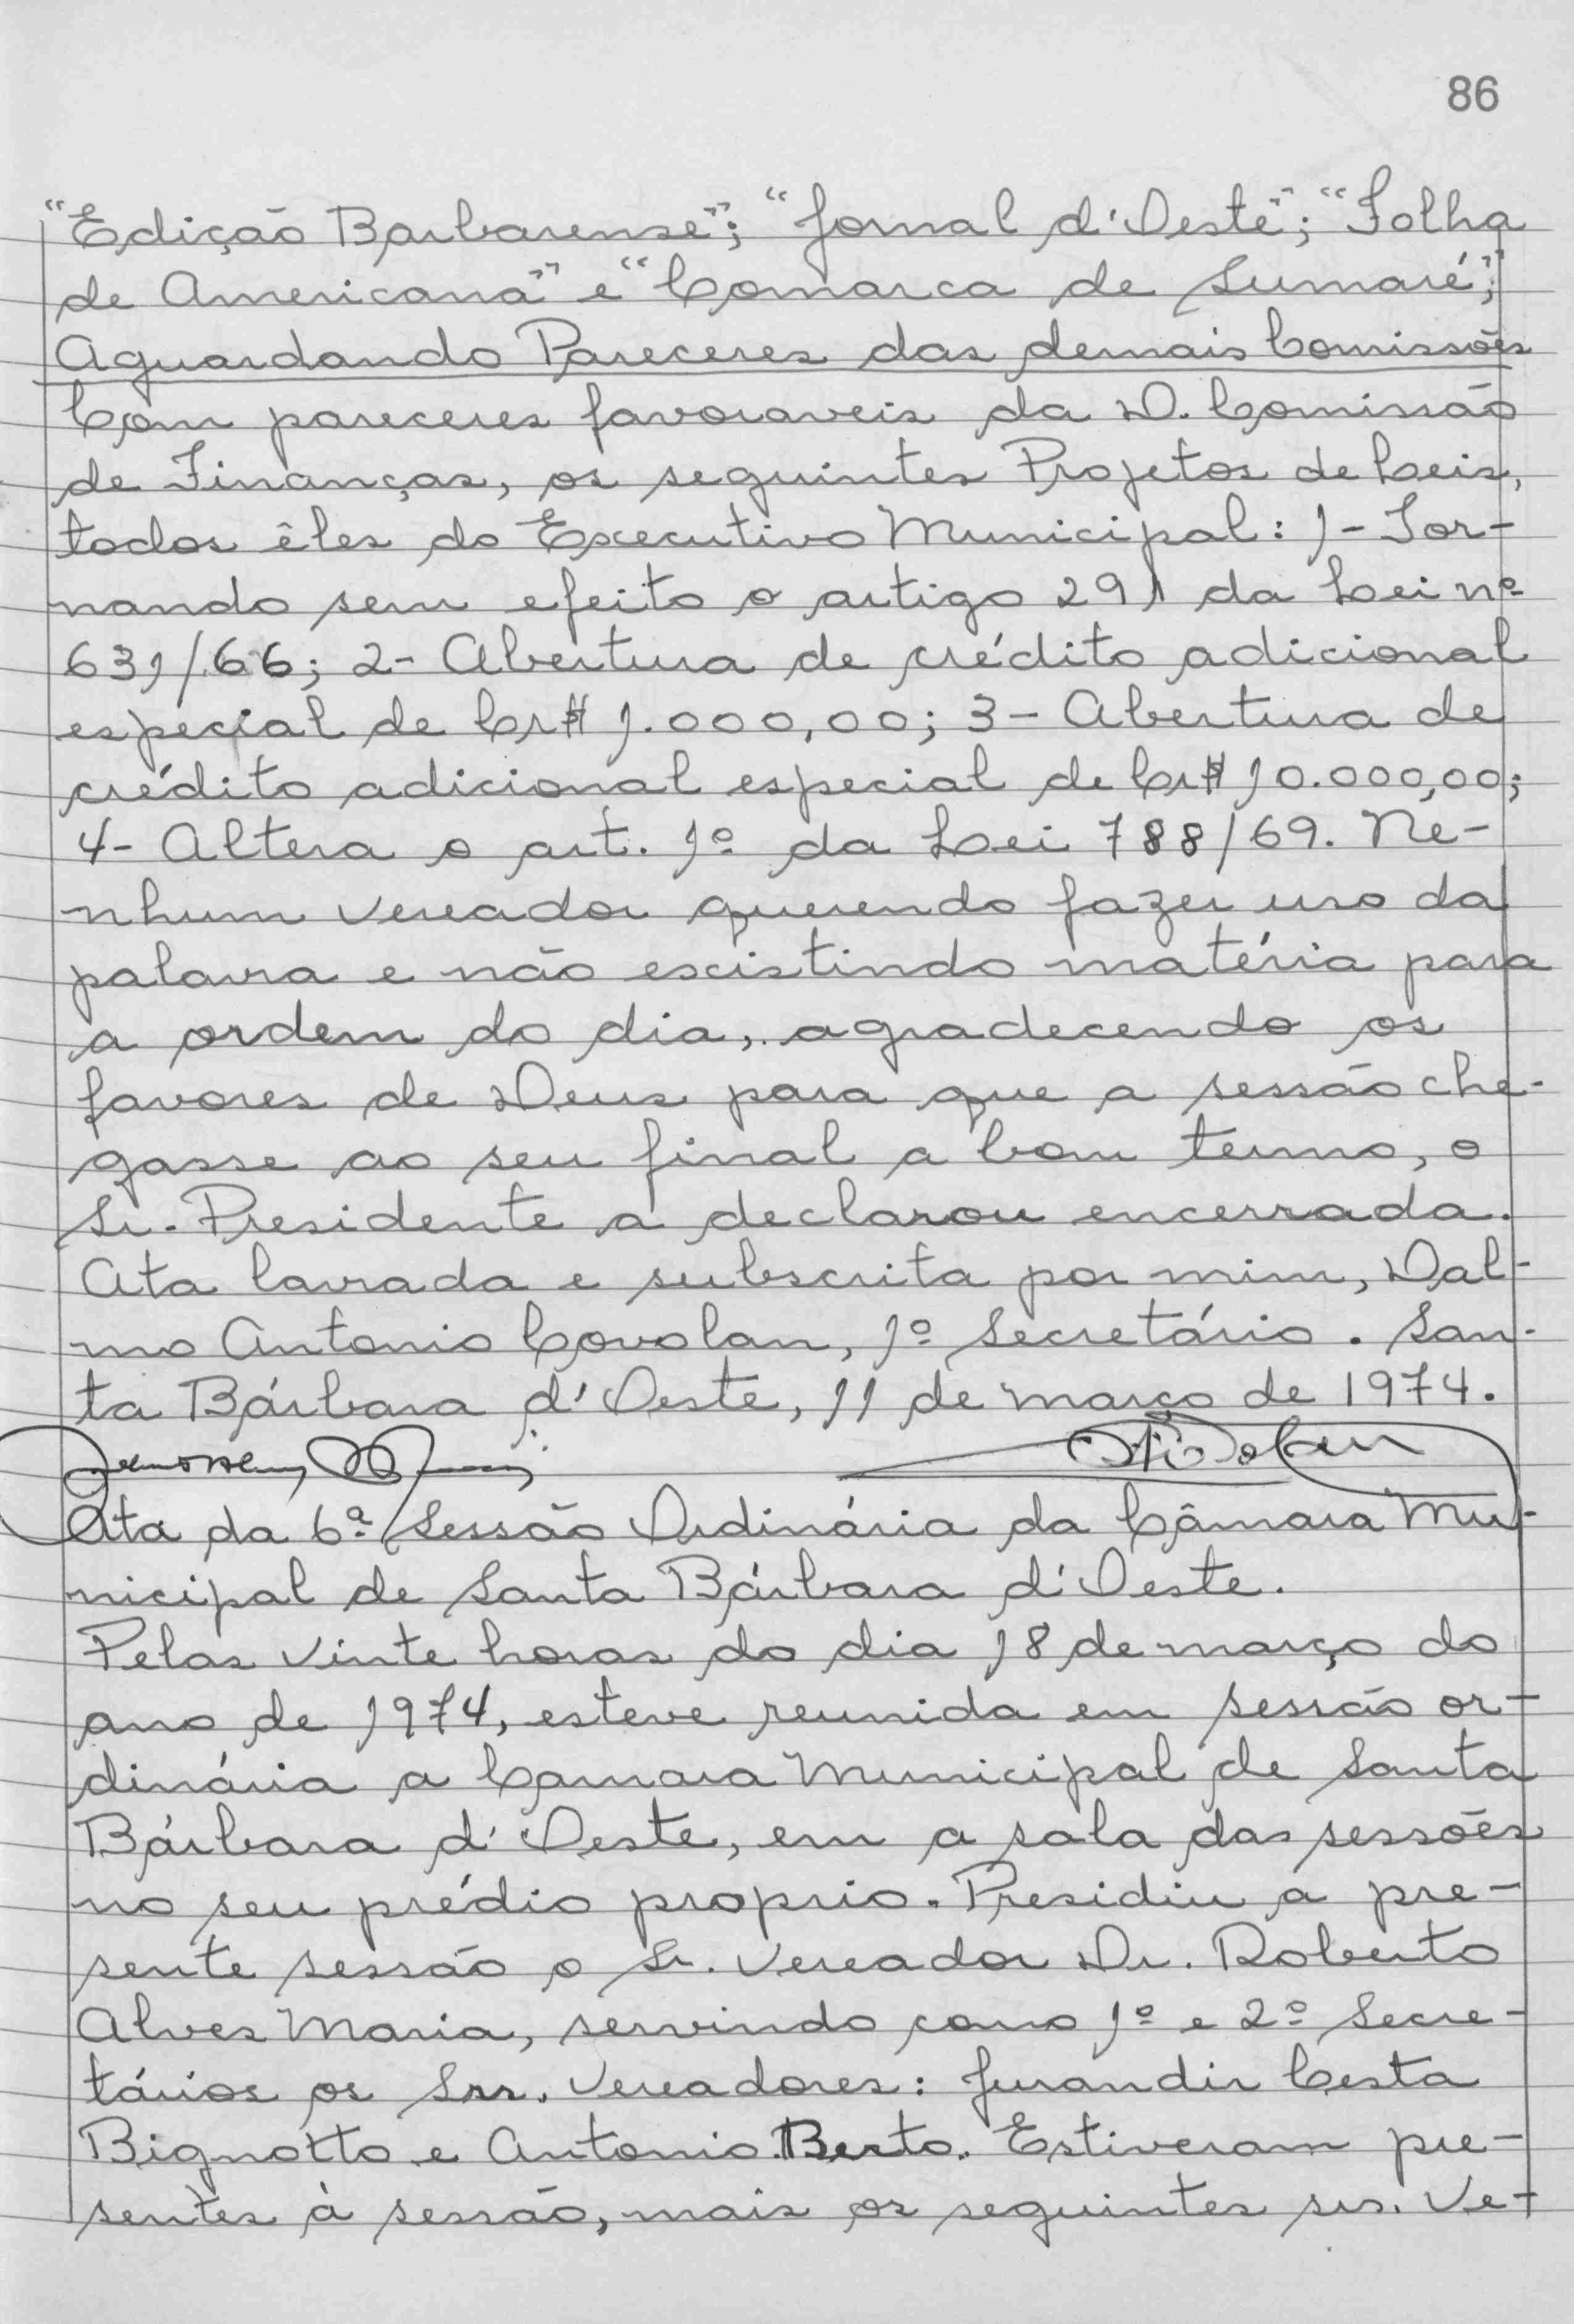 86
"Edição Barbarense"; "Jornal d'Oeste"; "Folha
de Americana" e "Comarca de Sumaré";
Aguardando Pareceres das demais Comissões
Com pareceres favoraveis da D. Comissão
de Finanças, os seguintes Projetos de Leis,
todos êles do Executivo Municipal: 1- Tor-
nando sem efeito o artigo 291 da Lei nº
631/66; 2- Abertura de crédito adicional
especial de Cr$ 1.000,00; 3- Abertura de
crédito adicional especial de Cr$ 10.000,00;
4- Altera o art. 1º da Lei 788/69. Ne-
nhum vereador querendo fazer uso da
palavra e não existindo matéria para
a ordem do dia, agradecendo os
favores de Deus para que a sessão che-
gasse ao seu final a bom termo, o
Sr. Presidente a declarou encerrada.
Ata lavrada e subscrita por mim, Dal-
mo Antonio Covolan, 1º Secretário. San-
ta Bárbara d'Oeste, 11 de março de 1974.
Ata da 6ª Sessão Ordinária da Câmara Mu-
nicipal de Santa Bárbara d'Oeste.
Pelas vinte horas do dia 18 de março do
ano de 1974, esteve reunida em sessão or-
dinária a Camara Municipal de Santa
Bárbara d'Oeste, em a sala das sessões
no seu prédio proprio. Presidiu a pre-
sente sessão o Sr. Vereador Dr. Roberto
Alves Maria, servindo como 1º e 2º Secre-
tários os Srs. Vereadores: Jurandir Cesta
Bignotto e Antonio Berto. Estiveram pre-
sentes à sessão, mais os seguintes srs. Ve-